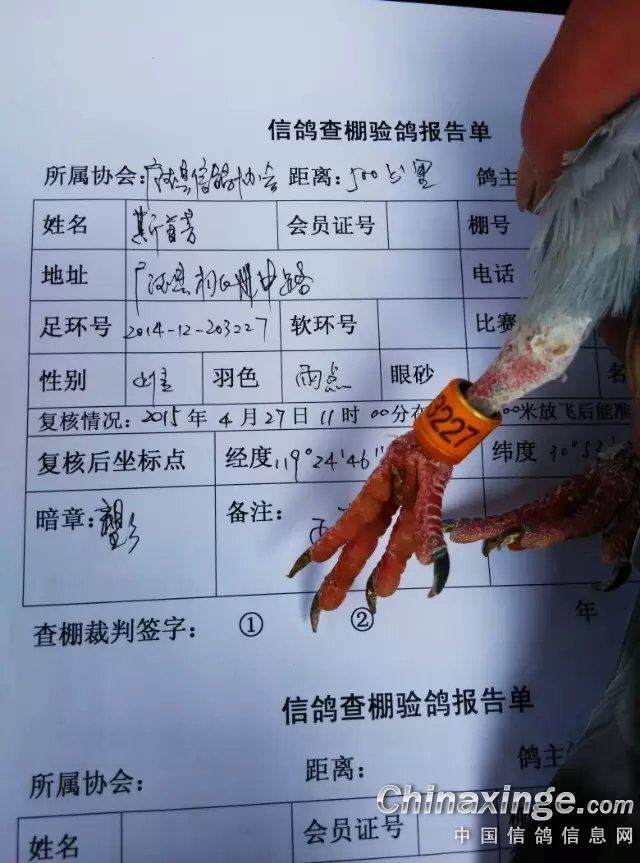 信鸽查棚验鸽报告单
所属协会: 信鸽协会 距离: 500公里 鸽主
姓名 会员证号 棚号
地址 广德县 中路 电话
足环号 2014-12-203227 软环号 比赛
性别 雄 羽色 雨点 眼砂 名
3227
复核情况: 2015 年 4 月 27 日 11 时 00 分在 00 米放飞后能准
复核后坐标点 经度 119°24'46" 纬度 30°52'
暗章: 备注:
查棚裁判签字: ① ② 年
信鸽查棚验鸽报告单
所属协会: 距离: 鸽主
姓名 会员证号 棚
Chinaxinge.com
中国信鸽信息网